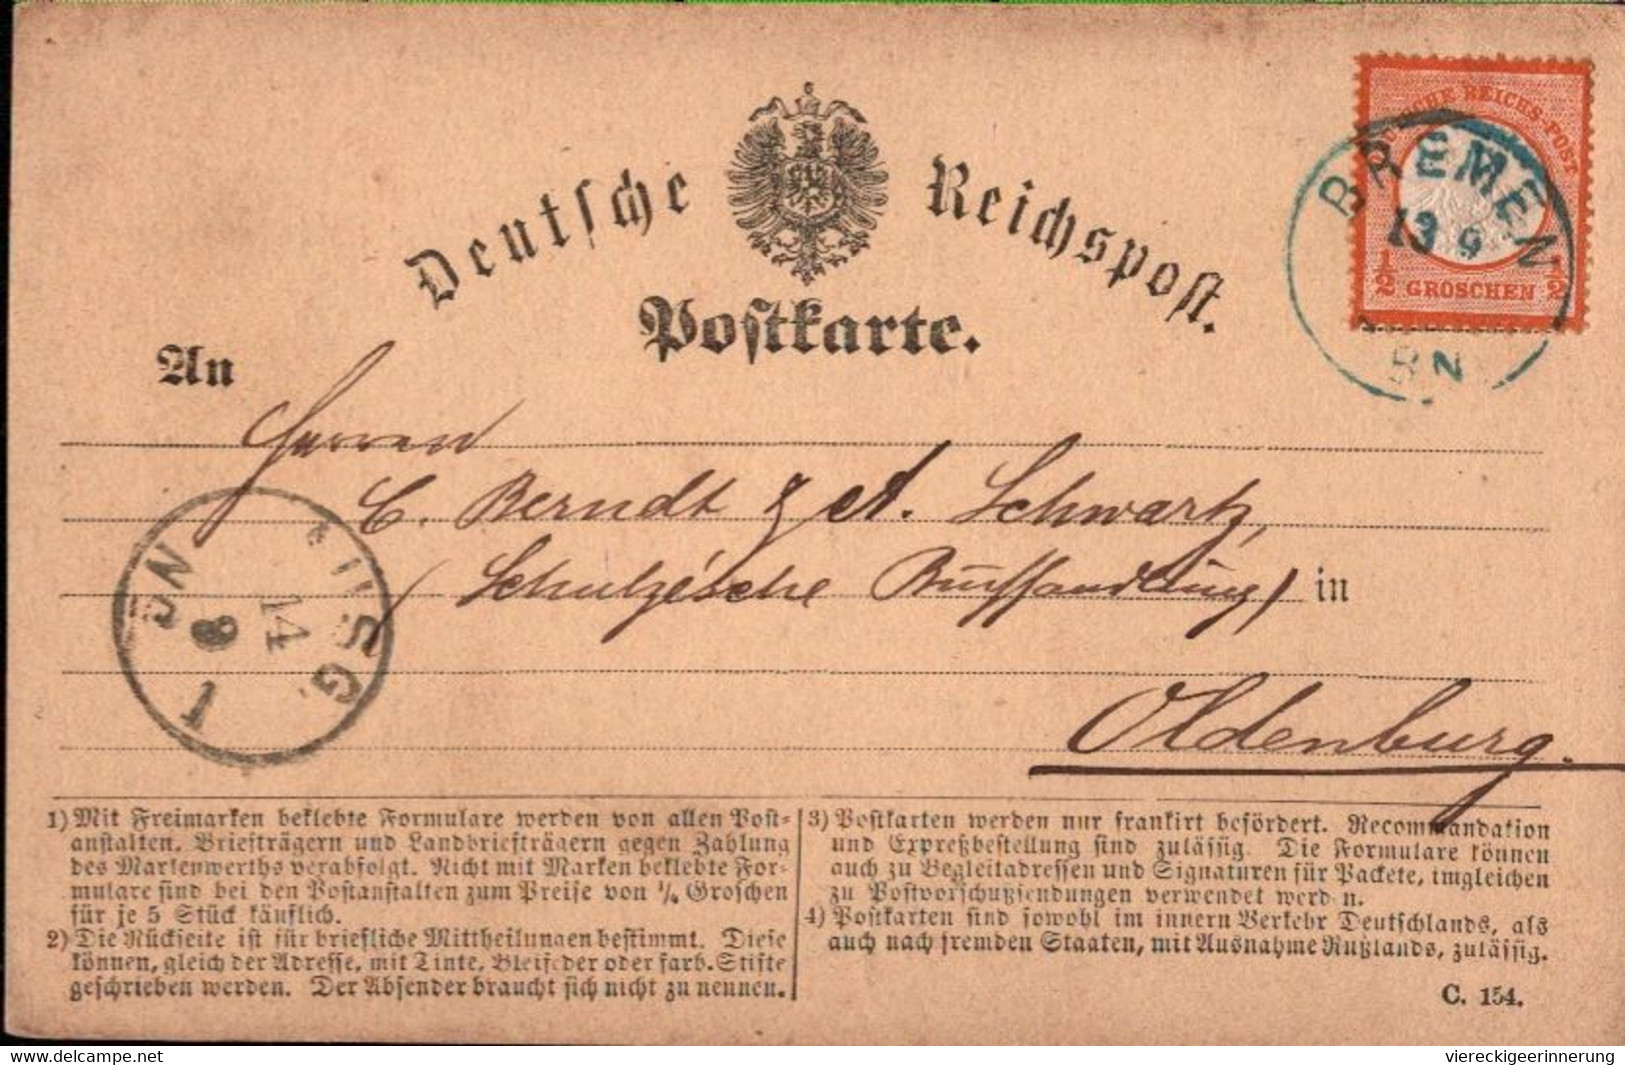 Deutsche Reichspost.
Postkarte.
DEUTSCHE REICHS-POST
½ GROSCHEN ½
BREMEN
13 9
BN
An
Herren
C. Berndt & A. Schwartz,
(Schulze'sche Buchhandlung) in
Oldenburg.
14
1
1) Mit Freimarken beklebte Formulare werden von allen Post-
anstalten, Briefträgern und Landbriefträgern gegen Zahlung
des Markenwerths verabfolgt. Nicht mit Marken beklebte For-
mulare sind bei den Postanstalten zum Preise von ¼ Groschen
für je 5 Stück käuflich.
2) Die Rückseite ist für briefliche Mittheilungen bestimmt. Diese
können, gleich der Adresse, mit Tinte, Bleifeder oder farb. Stifte
geschrieben werden. Der Absender braucht sich nicht zu nennen.
3) Postkarten werden nur frankirt befördert. Recommandation
und Expreßbestellung sind zulässig. Die Formulare können
auch zu Begleitadressen und Signaturen für Packete, imgleichen
zu Postvorschußsendungen verwendet werd n.
4) Postkarten sind sowohl im innern Verkehr Deutschlands, als
auch nach fremden Staaten, mit Ausnahme Rußlands, zulässig.
C. 154.
www.delcampe.net
viereckigeerinnerung